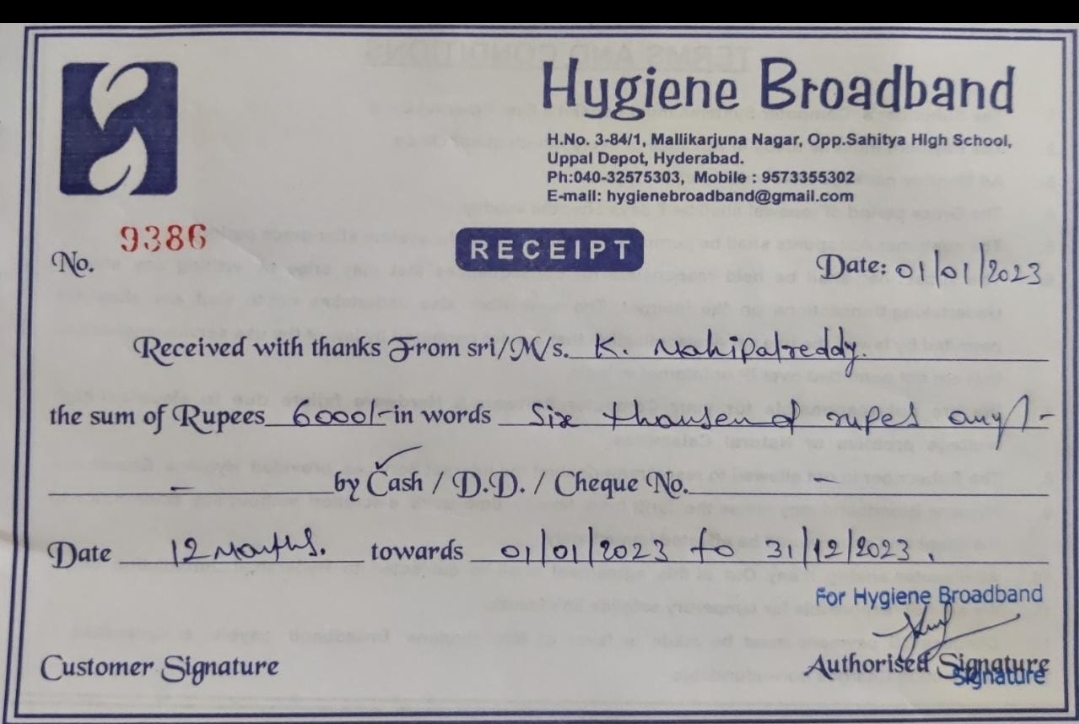 Hygiene Broadband
H.No. 3-84/1, Mallikarjuna Nagar, Opp.Sahitya High School,
Uppal Depot, Hyderabad.
Ph:040-32575303, Mobile : 9573355302
E-mail: hygienebroadband@gmail.com
No. 9386
RECEIPT
Date: 01/01/2023
Received with thanks From sri/M/s. K. Mahipalreddy.
the sum of Rupees 6000/- in words Six thousend rupes only/-
- by Cash / D.D. / Cheque No. -
Date 12 Months. towards 01/01/2023 to 31/12/2023.
For Hygiene Broadband
Customer Signature
Authorised Signature
Signature